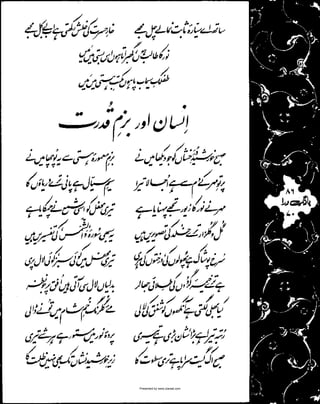 ساتھ اے سیارۂ ثابت نما لے چل مجھے خارِ حسرت کی خلش رکھتی ہے اب بے کل مجھے
نور کا طالب ہوں گھبراتا ہوں اس بستی میں مَیں
طفلکِ سیماب پا ہوں مکتبِ ہستی میں مَیں
انسان اور بزمِ قدرت
صبح خورشیدِ درخشاں کو جو دیکھا میں نے بزمِ معمورۂ ہستی سے یہ پوچھا میں نے
پرتوِ مہر کے دم سے ہے اجالا تیرا سیمِ سیال ہے پانی ترے دریاؤں کا
مہر نے نور کا زیور تجھے پہنایا ہے تیری محفل کو اسی شمع نے چمکایا ہے
گل و گلزار ترے خلد کی تصویریں ہیں یہ سبھی سورۂ والشمس کی تفسیریں ہیں
سرخ پوشاک ہے پھولوں کی درختوں کی ہری تیری محفل میں کوئی سبز کوئی لال پری
ہے ترے خیمۂ گردوں کی طلائی جھالر بدلیاں لال سی آتی ہیں افق پر جو نظر
کیا بھلی لگتی ہے آنکھوں کو شفق کی لالی مئے گلرنگ خمِ شام میں تو نے ڈالی
رتبہ تیرا ہے بڑا شان بڑی ہے تیری پردۂ نور میں مستور ہے ہر شے تیری
صبح اک گیت سراپا ہے تری سطوت کا زیرِ خورشید نشاں تک بھی نہیں ظلمت کا
۸۶
بانگِ درا
۷۰
Presented by www.ziaraat.com